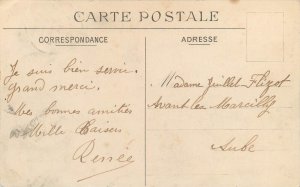 CARTE POSTALE
CORRESPONDANCE
ADRESSE
Je suis bien servie.
grand merci.
Mes bonnes amitiés
Mille Baisers
Renée
Madame Juillet-Flizot
Avant les Marcilly
Aube